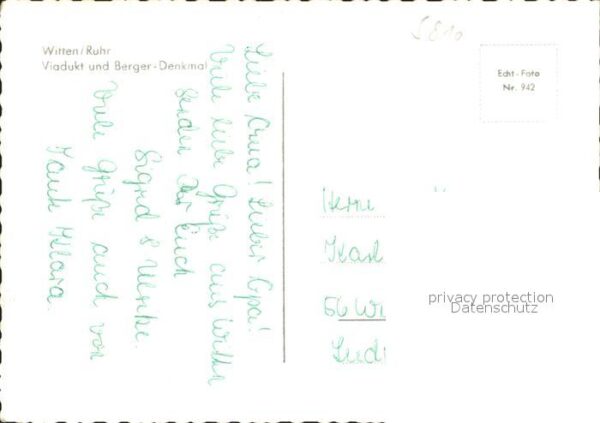 5810
Witten/Ruhr
Viadukt und Berger-Denkmal
Echt-Foto
Nr. 942
Liebe Oma! Lieber Opa!
Viele liebe Grüße aus Witten
senden Euch
Sigrid & Ulrike.
Viele Grüße auch von
Tante Klara.
Herrn
Karl
56 Wu
Ludi
privacy protection
Datenschutz